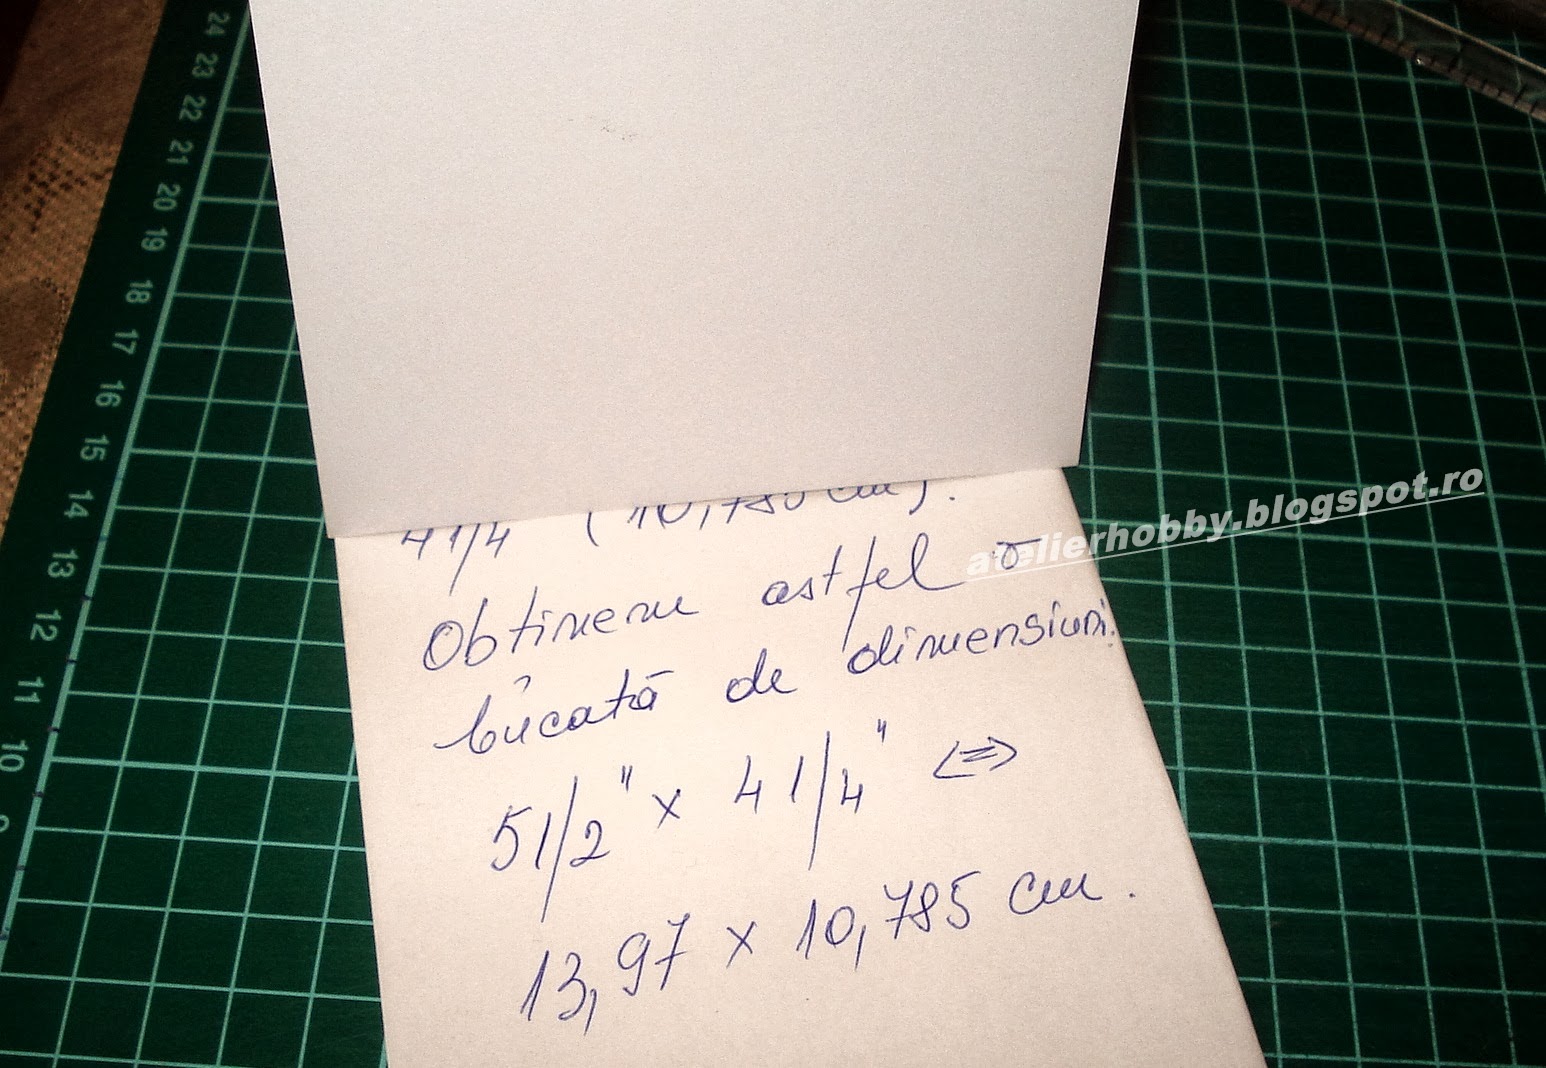 24
23
22
21
20
19
18
17
16
15
14
13
12
11
10
9
4 1/4 (10,785 cm).
Obtinem astfel o
bucată de dimensiuni:
5 1/2" x 4 1/4" <=>
13,97 x 10,785 cm.
atelierhobby.blogspot.ro